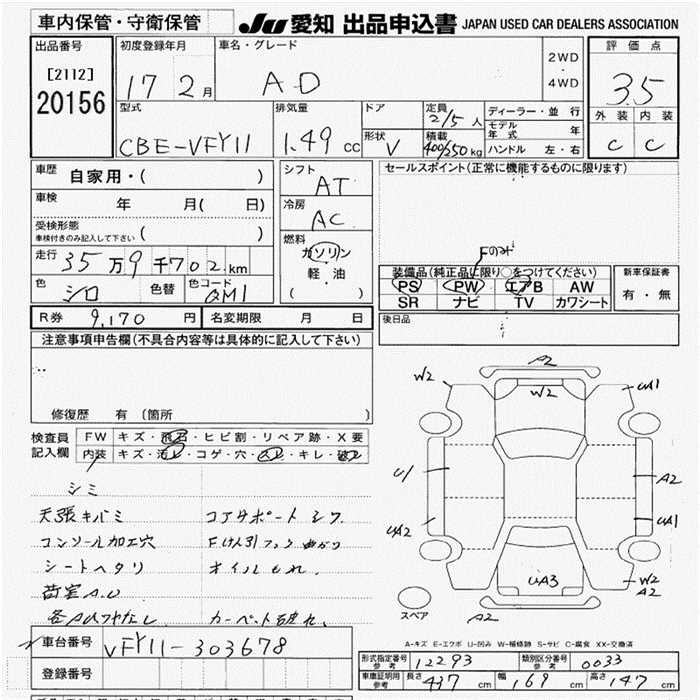 車内保管・守衛保管
JU 愛知 出品申込書 JAPAN USED CAR DEALERS ASSOCIATION
出品番号
[2112]
20156
初度登録年月
17 2月
車名・グレード
AD
2WD
・
4WD
評価点
3.5
外装 内装
C C
型式
CBE-VFY11
排気量
1.49 cc
ドア
形状
V
定員
2/5人
積載
400/250kg
ディーラー・並行
モデル年式 年
ハンドル 左・右
車歴 自家用・( )
車検 年 月( 日)
受検形態
車検付きのみ記入して下さい ( )
走行 35万9千702km
色 シロ 色替 色コード QM1
シフト AT
冷房 AC
燃料
ガソリン
軽・油
( )
セールスポイント(正常に機能するものに限ります)
Fのみ
装備品(純正品に限り○をつけてください)
PS PW エアB AW
SR ナビ TV カワシート
新車保証書
有・無
R券 9,170円 名変期限 月 日
後日品
注意事項申告欄(不具合内容等は具体的に記入して下さい)
修復歴 有 (箇所 )
検査員記入欄
FW キズ・飛石・ヒビ割・リペア跡・X要
内装 キズ・汚れ・コゲ・穴・スレ・キレ・破れ
シミ
天張キバミ コアサポートシワ
コンソール加工穴 Fけん引フック曲がり
シートヘタリ オイルもれ.
荷室A.U
カーペット破れ.
A2
W2
W2
UA1
U1
A2
UA2
UA1
UA3
W2
A2
A2
スペア
A-キズ E-エクボ U-凹み W-補修跡 S-サビ C-腐食 XX-交換済
車台番号 VFY11-303678
登録番号
形式指定番号 参考 12293 類別区分番号 参考 0033
車庫証明用 参考 長さ 437cm 幅 169cm 高さ 147cm